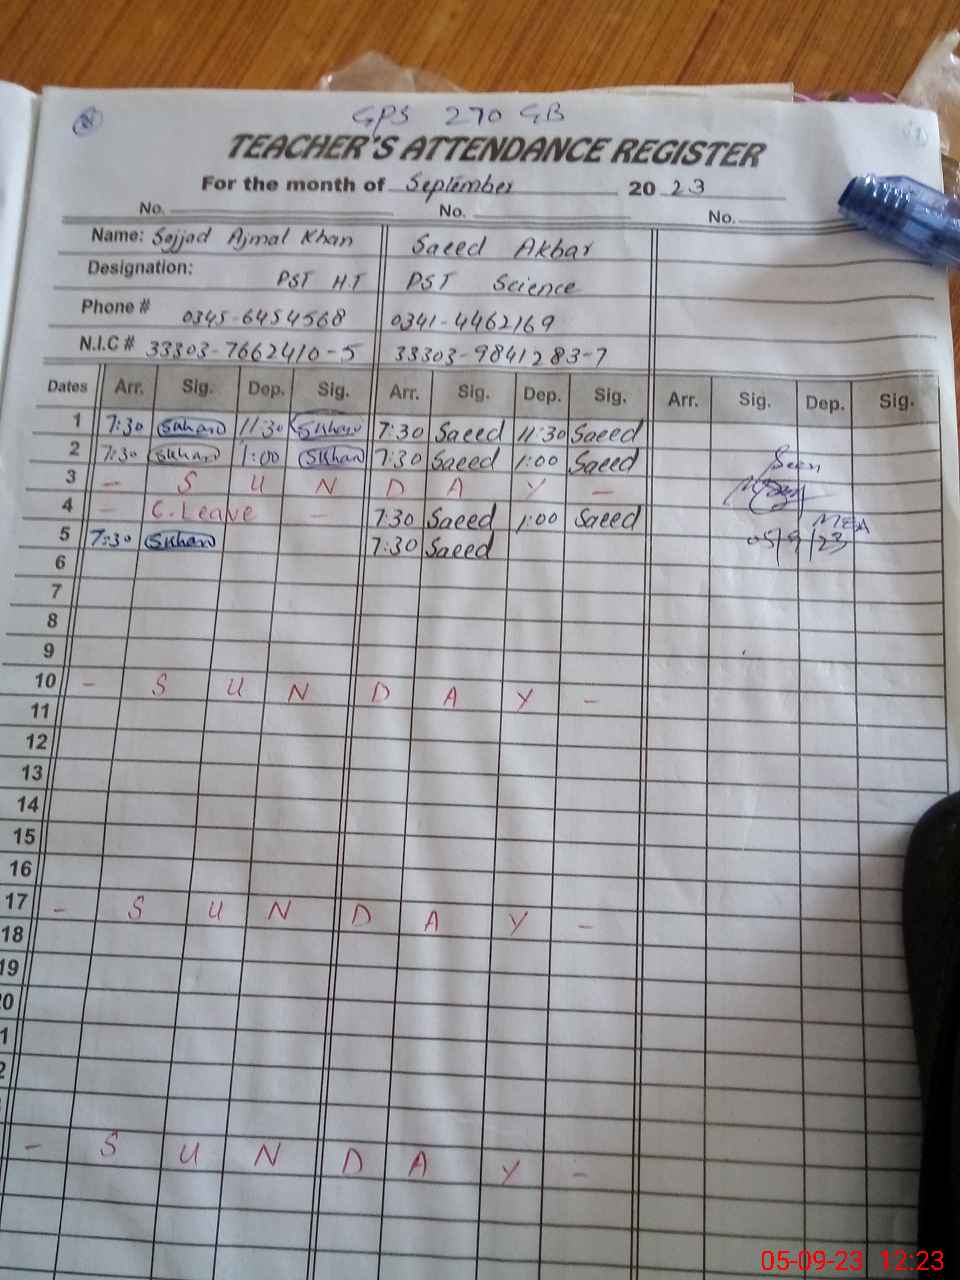 GPS 270 GB
TEACHER'S ATTENDANCE REGISTER
For the month of September 20 23
No. No. No.
Name: Sajjad Ajmal Khan Saeed Akbar
Designation: PST H.T PST Science
Phone # 0345-6454568 0341-4462169
N.I.C # 33303-7662410-5 33303-9841283-7
Dates Arr. Sig. Dep. Sig. Arr. Sig. Dep. Sig. Arr. Sig. Dep. Sig.
1 7:30 SKhan 11:30 SKhan 7:30 Saeed 11:30 Saeed
2 7:30 SKhan 1:00 SKhan 7:30 Saeed 1:00 Saeed Seen
3 - S U N D A Y -
4 - C. Leave - 7:30 Saeed 1:00 Saeed MEA
5 7:30 SKhan 7:30 Saeed 05/9/23
6
7
8
9
10 - S U N D A Y -
11
12
13
14
15
16
17 - S U N D A Y -
18
19
0
1
2
- S U N D A Y -
05-09-23 12:23